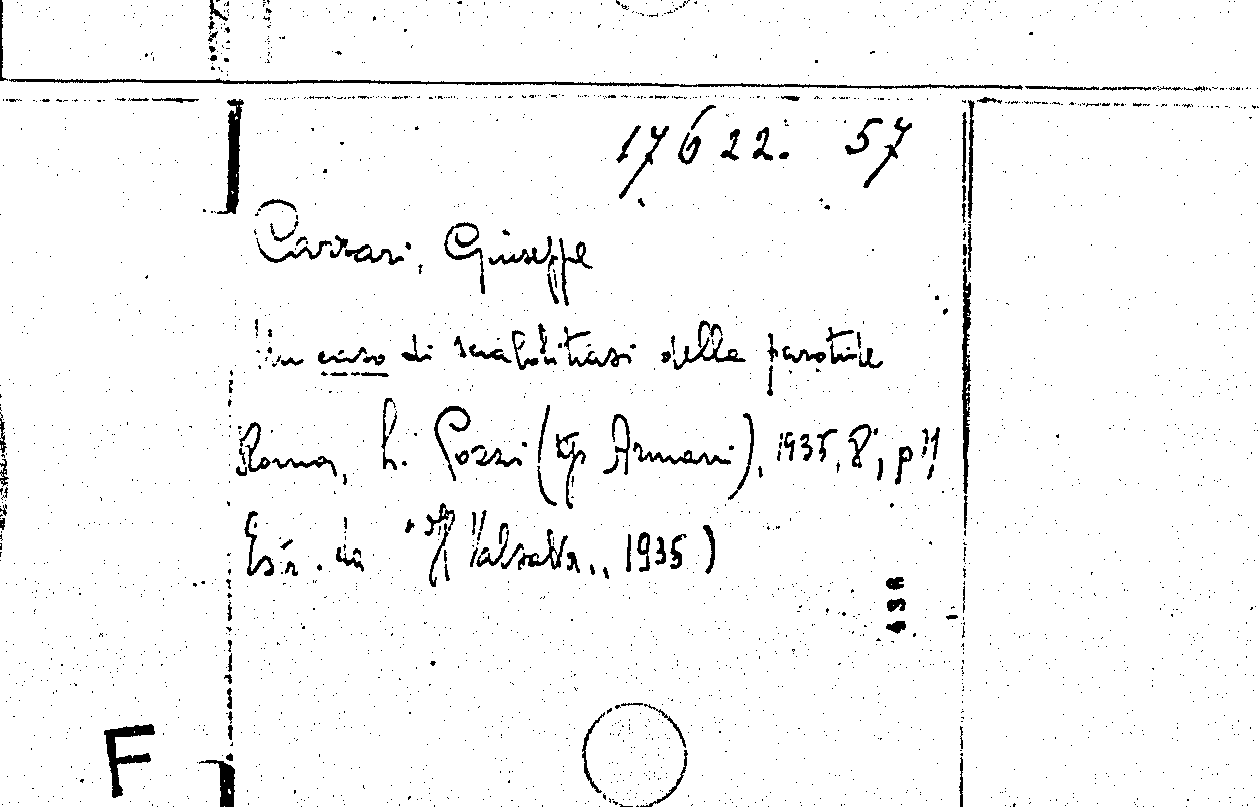 17622. 57
Carrari, Giuseppe
Un caso di scialolitiasi della parotide
Roma, L. Pozzi (tip Armani), 1935, 8°, p
Estr. da "Il Valsalva", 1935)
43A
F